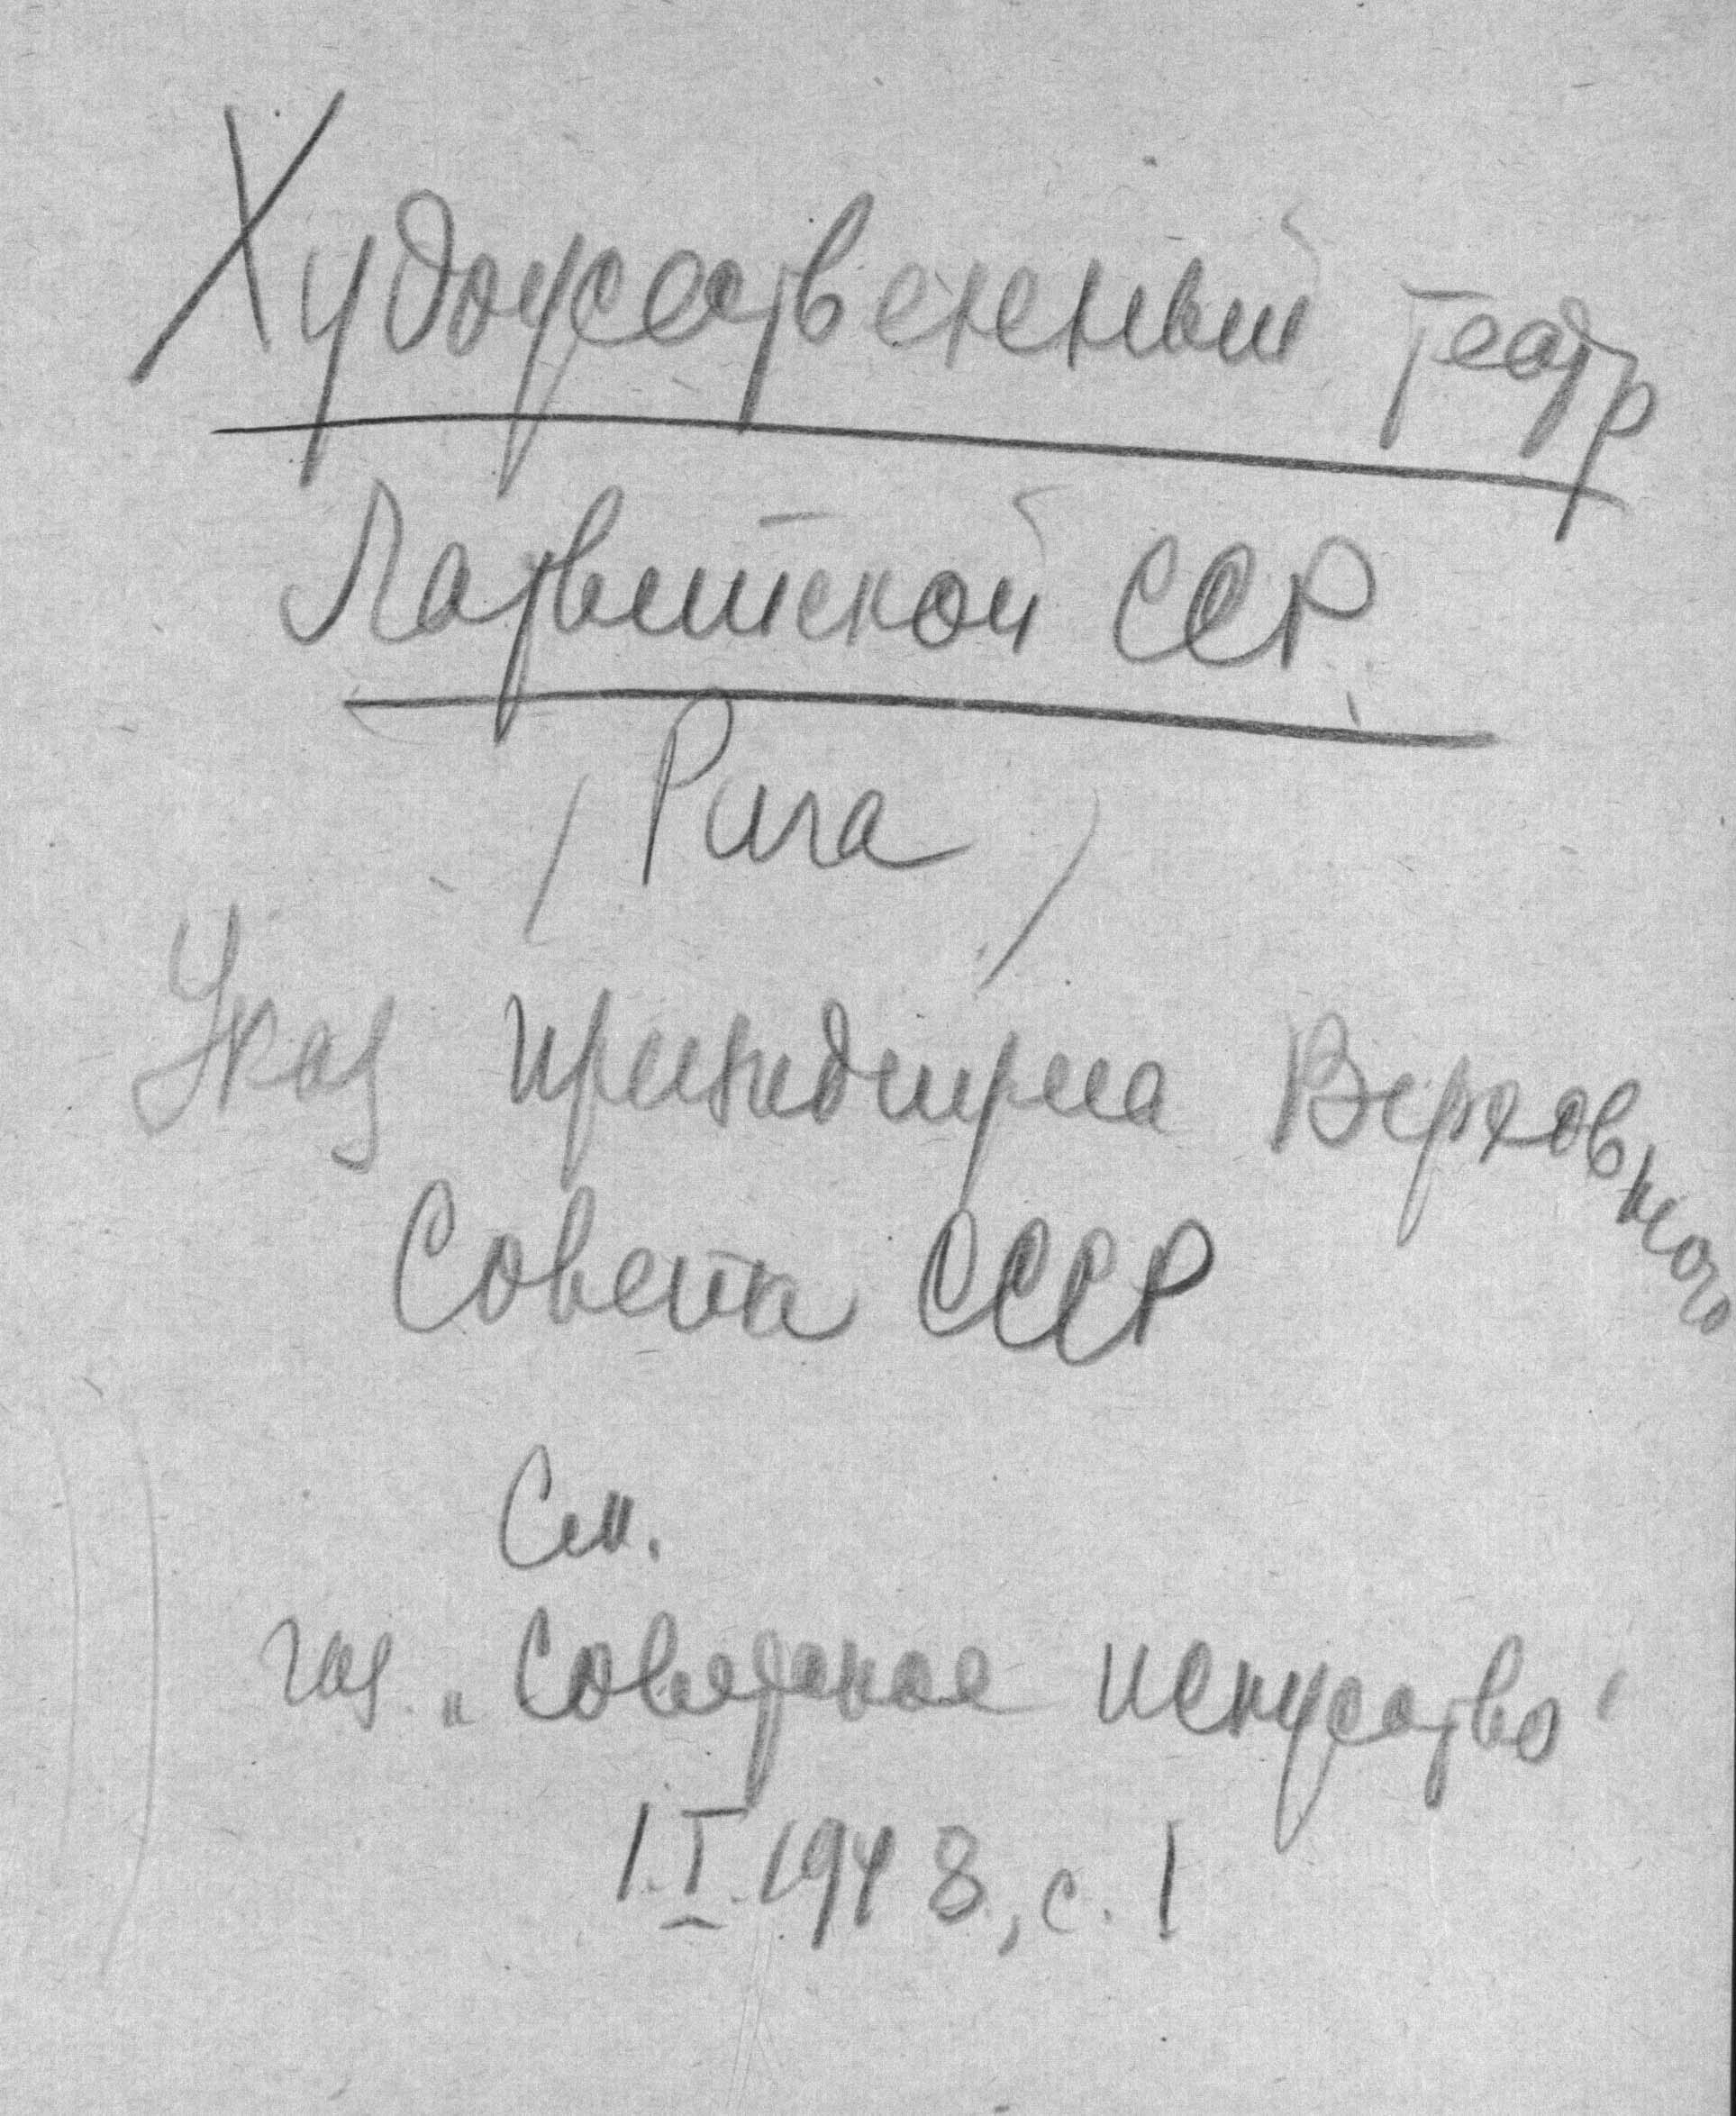 Художественный театр
Латвийской ССР
(Рига)
Указ президиума Верховного
Совета СССР
См.
газ. „Советское искусство"
1.I.1948, с. 1